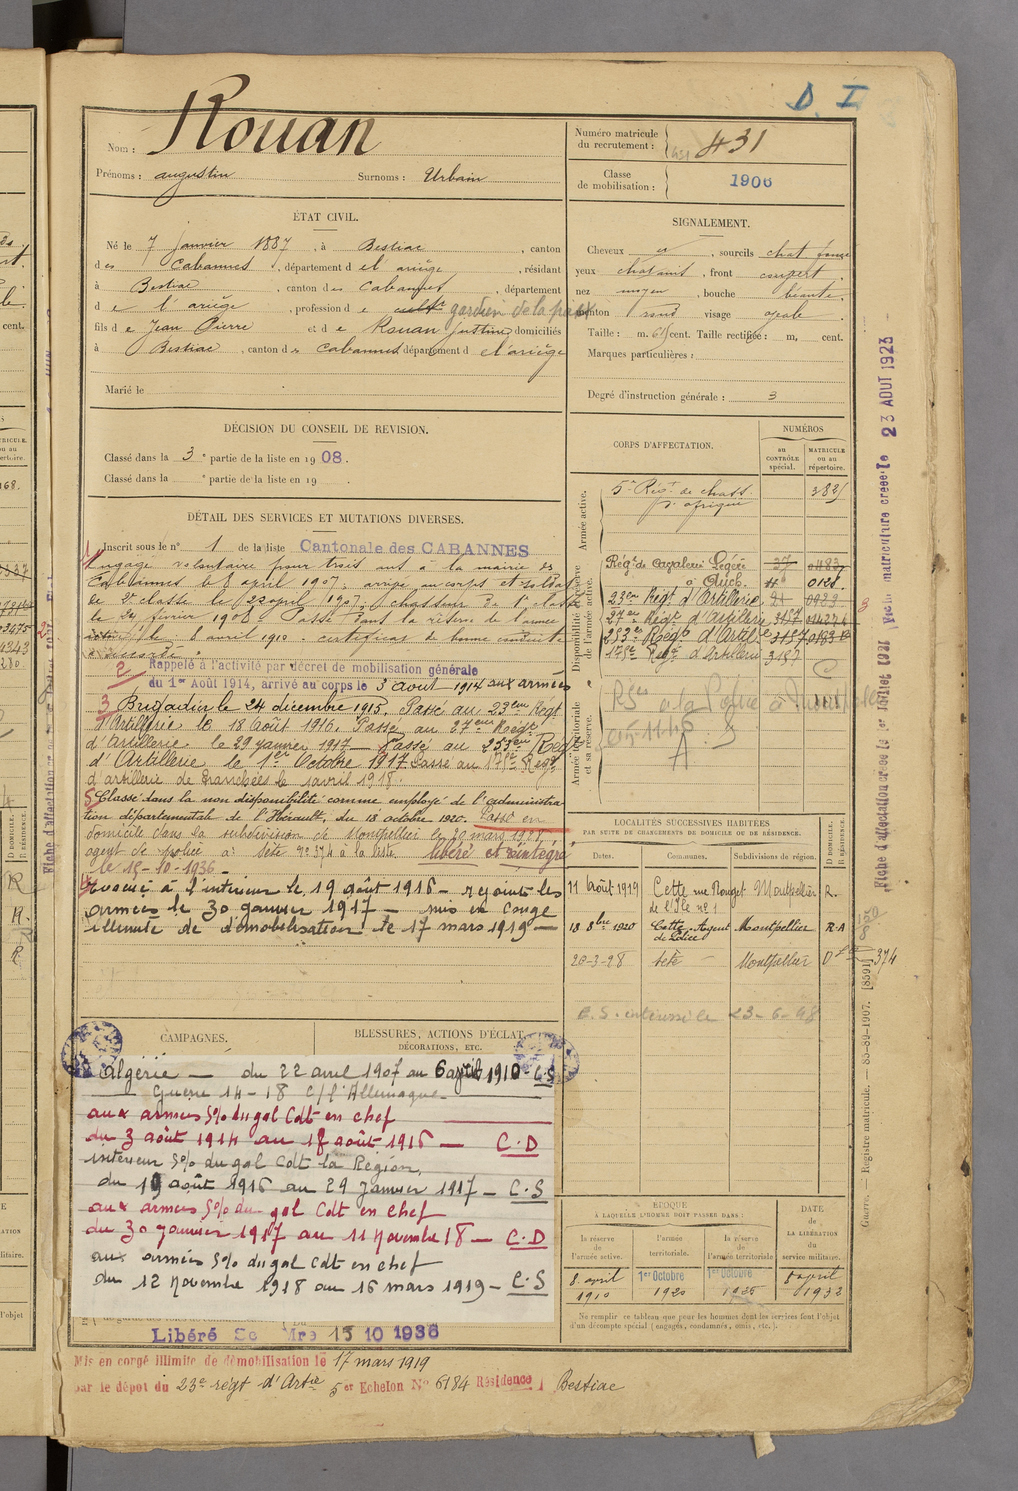 D. I
Nom : Rouan
Prénoms : augustin Surnoms : Urbain
Numéro matricule du recrutement : 431
Classe de mobilisation : 1906
ÉTAT CIVIL.
Né le 7 Janvier 1887, à Bestiac, canton
des Cabannes, département de l'ariège, résidant
à Bestiac, canton des Cabannes, département
de l'ariège, profession de gardien de la paix
fils de Jean Pierre et de Rouan Justine domiciliés
à Bestiac, canton des Cabannes département de l'ariège
Marié le
SIGNALEMENT.
Cheveux, sourcils chat foncé
yeux chatains, front couvert
nez moyen, bouche béante
menton rond visage ovale
Taille : 1 m. 65 cent. Taille rectifiée : m, cent.
Marques particulières :
Degré d'instruction générale : 3
DÉCISION DU CONSEIL DE REVISION.
Classé dans la 3e partie de la liste en 1908.
Classé dans la e partie de la liste en 19
DÉTAIL DES SERVICES ET MUTATIONS DIVERSES.
Inscrit sous le n° 1 de la liste Cantonale des CABANNES
1 Engagé volontaire pour trois ans à la mairie des
Cabannes le 8 avril 1907. arrivé au corps et soldat
de 2e classe le 22 avril 1907. Chasseur de 1e classe
le 24 février 1908. Passé dans la réserve de l'armée
active le 8 avril 1910. certificat de bonne conduite
accordé
2 Rappelé à l'activité par décret de mobilisation générale
du 1er Août 1914, arrivé au corps le 3 aout 1914 aux armées
3 Brigadier le 24 décembre 1915. Passé au 23eme Regt
d'Artillerie le 18 Août 1916. Passé au 27eme Régt
d'Artillerie le 29 janvier 1917 — Passé au 253eme Régt
d'Artillerie le 1er Octobre 1917 Passé au 175e Régt
d'artillerie de tranchées le 1 avril 1918.
5 Classé dans la non disponibilité comme employé de l'administra-
tion départementale de l'Hérault, du 18 octobre 1920. Passé en
domicile dans la subdivision de Montpellier le 20 mars 1928
agent de police à Sète n° 374 à la liste. libéré et réintégré
le 15-10-1936 -
4 Evacué à l'intérieur le 19 août 1916 — rejoint les
armées le 30 janvier 1917 — mis en congé
illimité de démobilisation le 17 mars 1919 —
CORPS D'AFFECTATION.
NUMÉROS
au CONTRÔLE spécial.
MATRICULE ou au répertoire.
Armée active.
5e Régt de chass.
d'afrique
Disponibilité et réserve de l'armée active.
Régt de Cavalerie Légère 37
à Auch 0128
23eme Régt d'Artillerie 21
27eme Régt d'Artillerie 3157
253eme Régt d'Artillie 3157
175e Régt d'Artillerie 3157
Armée territoriale et sa réserve.
LOCALITÉS SUCCESSIVES HABITÉES
PAR SUITE DE CHANGEMENTS DE DOMICILE OU DE RÉSIDENCE.
Dates. Communes. Subdivisions de région. D DOMICILE. R RÉSIDENCE.
11 Août 1919 Cette rue Rouget de l'Isle n° 1 Montpellier R.
18 8bre 1920 Cette Agent de Police Montpellier R.A
20-3-28 Sète Montpellier D 374
23-6-48
CAMPAGNES.
BLESSURES, ACTIONS D'ÉCLAT,
DÉCORATIONS, ETC.
Algérie — du 22 avril 1907 au 6 avril 1910 - C.S
Guerre 14-18 C/ l'Allemagne
aux armées S% du gal Cdt en chef
du 3 août 1914 au 18 août 1916 — C.D
intérieur S% du gal Cdt la Région,
du 19 août 1916 au 29 janvier 1917 — C.S
aux armées S% du gal Cdt en chef
du 30 janvier 1917 au 11 Novembre 18 — C.D
aux armées S% du gal Cdt en chef
du 12 Novembre 1918 au 16 mars 1919 — C.S
ÉPOQUE
À LAQUELLE L'HOMME DOIT PASSER DANS :
la réserve de l'armée active.
l'armée territoriale.
la réserve de l'armée territoriale
DATE de LA LIBÉRATION du service militaire.
8 avril 1910
1er Octobre 1920
1er Octobre
8 avril 1932
Ne remplir ce tableau que pour les hommes dont les services font l'objet
d'un décompte spécial (engagés, condamnés, omis, etc.).
Libéré Sce Mre 15 10 1936
Mis en congé illimité de démobilisation le 17 mars 1919
par le dépot du 23e régt d'Artie 5er Echelon N° 6184 Résidence Bestiac
Guerre. — Registre matricule. — 85-89-1907. [8591]
23 AOUT 1923